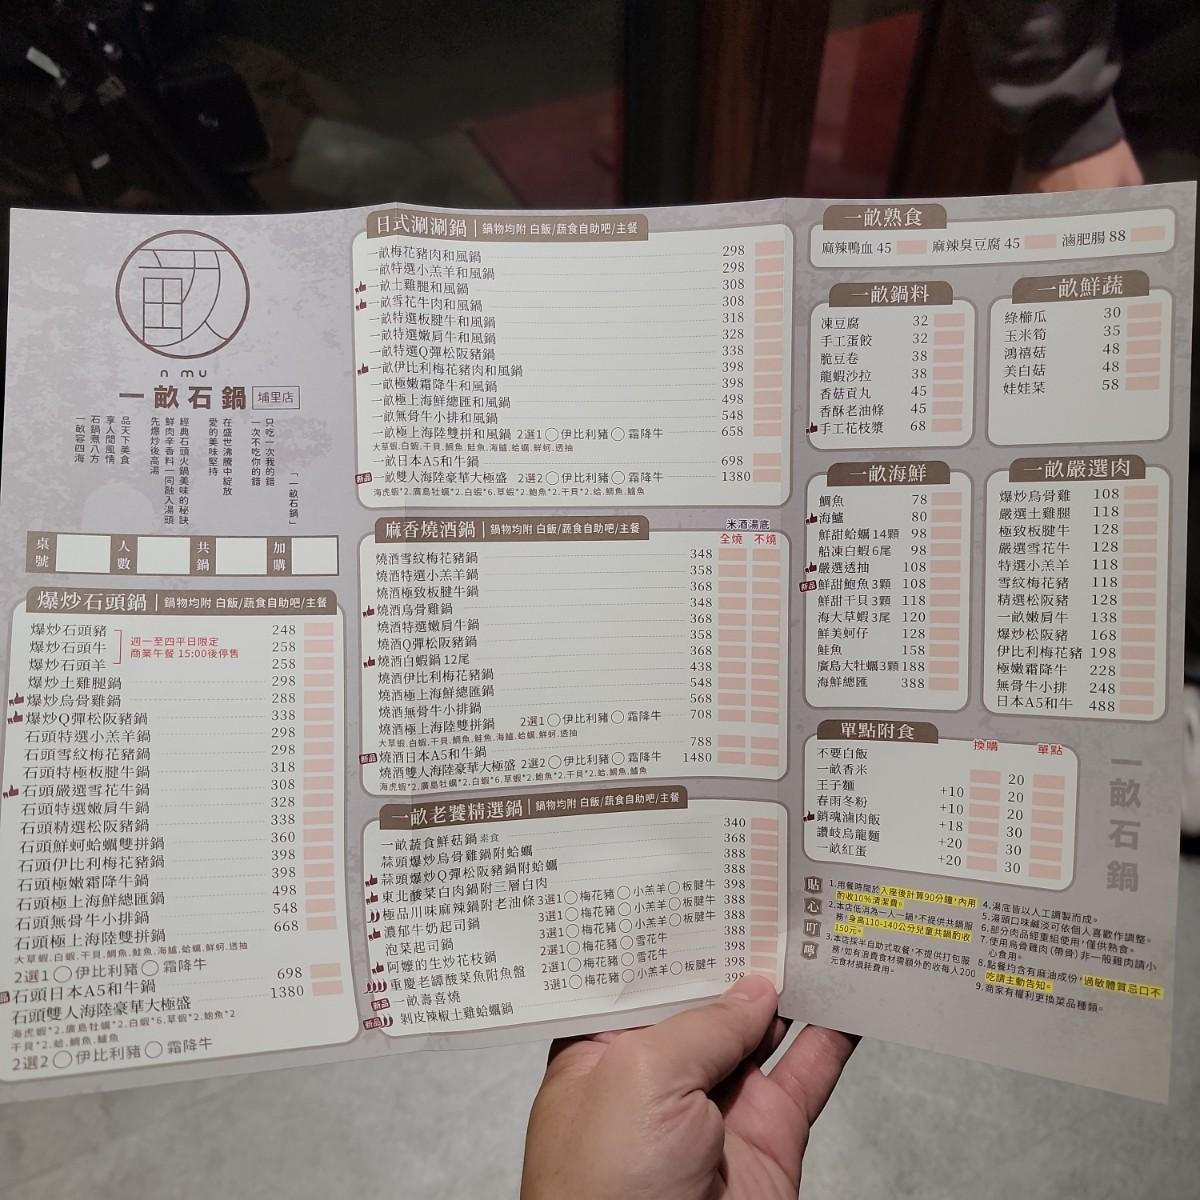 n mu
一畝石鍋 埔里店
「一畝石鍋」
只吃一次我的錯
一次不吃你的錯
在盛世沸騰中綻放
愛的美味堅持
經典石頭火鍋美味的秘訣
鮮肉辛香料一同融入湯頭
先爆炒後高湯
品天下美食
享人間風情
石鍋煮八方
一畝容四海
桌號 人數 共鍋 加購
爆炒石頭鍋 | 鍋物均附 白飯/蔬食自助吧/主餐
爆炒石頭豬 248
爆炒石頭牛 258
爆炒石頭羊 258
週一至四平日限定
商業午餐 15:00後停售
爆炒土雞腿鍋 298
爆炒烏骨雞鍋 288
爆炒Q彈松阪豬鍋 338
石頭特選小羔羊鍋 298
石頭雪紋梅花豬鍋 298
石頭特極板腱牛鍋 318
石頭嚴選雪花牛鍋 308
石頭特選嫩肩牛鍋 328
石頭精選松阪豬鍋 338
石頭鮮蚵蛤蠣雙拼鍋 360
石頭伊比利梅花豬鍋 398
石頭極嫩霜降牛鍋 398
石頭極上海鮮總匯鍋 498
石頭無骨牛小排鍋 548
石頭極上海陸雙拼鍋 668
大草蝦.白蝦.干貝.鯛魚.鮭魚.海鱸.蛤蠣.鮮蚵.透抽
2選1○伊比利豬○霜降牛
石頭日本A5和牛鍋 698
石頭雙人海陸豪華大極盛 1380
海虎蝦*2.廣島牡蠣*2.白蝦*6.草蝦*2.鮑魚*2
干貝*2.蛤.鯛魚.鱸魚
2選2○伊比利豬○霜降牛
日式涮涮鍋 | 鍋物均附 白飯/蔬食自助吧/主餐
一畝梅花豬肉和風鍋 298
一畝特選小羔羊和風鍋 298
一畝土雞腿和風鍋 308
一畝雪花牛肉和風鍋 308
一畝特選板腱牛和風鍋 318
一畝特選嫩肩牛和風鍋 328
一畝特選Q彈松阪豬鍋 338
一畝伊比利梅花豬肉和風鍋 398
一畝極嫩霜降牛和風鍋 398
一畝極上海鮮總匯和風鍋 498
一畝無骨牛小排和風鍋 548
一畝極上海陸雙拼和風鍋 2選1○伊比利豬○霜降牛 658
大草蝦.白蝦.干貝.鯛魚.鮭魚.海鱸.蛤蠣.鮮蚵.透抽
一畝日本A5和牛鍋 698
新品 一畝雙人海陸豪華大極盛 2選2○伊比利豬○霜降牛 1380
海虎蝦*2.廣島牡蠣*2.白蝦*6.草蝦*2.鮑魚*2.干貝*2.蛤.鯛魚.鱸魚
麻香燒酒鍋 | 鍋物均附 白飯/蔬食自助吧/主餐
米酒湯底
全燒 不燒
燒酒雪紋梅花豬鍋 348
燒酒特選小羔羊鍋 358
燒酒極致板腱牛鍋 368
燒酒烏骨雞鍋 348
燒酒特選嫩肩牛鍋 368
燒酒Q彈松阪豬鍋 358
燒酒白蝦鍋 12尾 368
燒酒伊比利梅花豬鍋 438
燒酒極上海鮮總匯鍋 548
燒酒無骨牛小排鍋 568
燒酒極上海陸雙拼鍋 2選1○伊比利豬○霜降牛 708
大草蝦.白蝦.干貝.鯛魚.鮭魚.海鱸.蛤蠣.鮮蚵.透抽
燒酒日本A5和牛鍋 788
燒酒雙人海陸豪華大極盛 2選2○伊比利豬○霜降牛 1480
海虎蝦*2.廣島牡蠣*2.白蝦*6.草蝦*2.鮑魚*2.干貝*2.蛤.鯛魚.鱸魚
一畝老饕精選鍋 | 鍋物均附 白飯/蔬食自助吧/主餐
一畝蔬食鮮菇鍋 素食 340
蒜頭爆炒烏骨雞鍋附蛤蠣 368
蒜頭爆炒Q彈松阪豬鍋附蛤蠣 388
東北酸菜白肉鍋附三層白肉 388
極品川味麻辣鍋附老油條 3選1○梅花豬○小羔羊○板腱牛 398
濃郁牛奶起司鍋 3選1○梅花豬○小羔羊○板腱牛 388
泡菜起司鍋 3選1○梅花豬○小羔羊○板腱牛 388
阿嬤的生炒花枝鍋 2選1○梅花豬○雪花牛 398
重慶老罈酸菜魚附魚盤 2選1○梅花豬○雪花牛 398
新品 一畝壽喜燒 3選1○梅花豬○小羔羊○板腱牛 398
新品 剝皮辣椒土雞蛤蠣鍋 398
一畝熟食
麻辣鴨血 45 麻辣臭豆腐 45 滷肥腸 88
一畝鍋料
凍豆腐 32
手工蛋餃 32
脆豆卷 38
龍蝦沙拉 38
香菇貢丸 45
香酥老油條 45
手工花枝漿 68
一畝鮮蔬
綠櫛瓜 30
玉米筍 35
鴻禧菇 48
美白菇 48
娃娃菜 58
一畝海鮮
鯛魚 78
海鱸 80
鮮甜蛤蠣 14顆 98
船凍白蝦 6尾 98
嚴選透抽 108
新品 鮮甜鮑魚 3顆 108
鮮甜干貝 3顆 118
海大草蝦 3尾 120
鮮美蚵仔 128
鮭魚 158
廣島大牡蠣 3顆 188
海鮮總匯 388
一畝嚴選肉
爆炒烏骨雞 108
嚴選土雞腿 118
極致板腱牛 128
嚴選雪花牛 128
特選小羔羊 118
雪紋梅花豬 118
精選松阪豬 128
一畝嫩肩牛 138
爆炒松阪豬 168
伊比利梅花豬 198
極嫩霜降牛 228
無骨牛小排 248
日本A5和牛 488
單點附食
換購 單點
不要白飯
一畝香米 20
王子麵 +10 20
春雨冬粉 +10 20
銷魂滷肉飯 +18 30
讚岐烏龍麵 +20 30
一畝紅蛋 +20 30
一畝石鍋
貼心叮嚀
1.用餐時間於入座後計算90分鐘,內用酌收10%清潔費。
2.本店低消為一人一鍋,不提供共鍋服務,身高110-140公分兒童共鍋酌收150元。
3.本店採半自助式取餐,不提供打包服務,如有浪費食材需額外酌收每人200元食材損耗費用。
4.湯底皆以人工調製而成。
5.湯頭口味鹹淡可依個人喜歡作調整。
6.部分肉品經重組使用,僅供熟食。
7.使用烏骨雞肉(帶骨)非一般雞肉請小心食用。
8.點餐均含有麻油成份,過敏體質忌口不吃請主動告知。
9.商家有權利更換菜品種類。